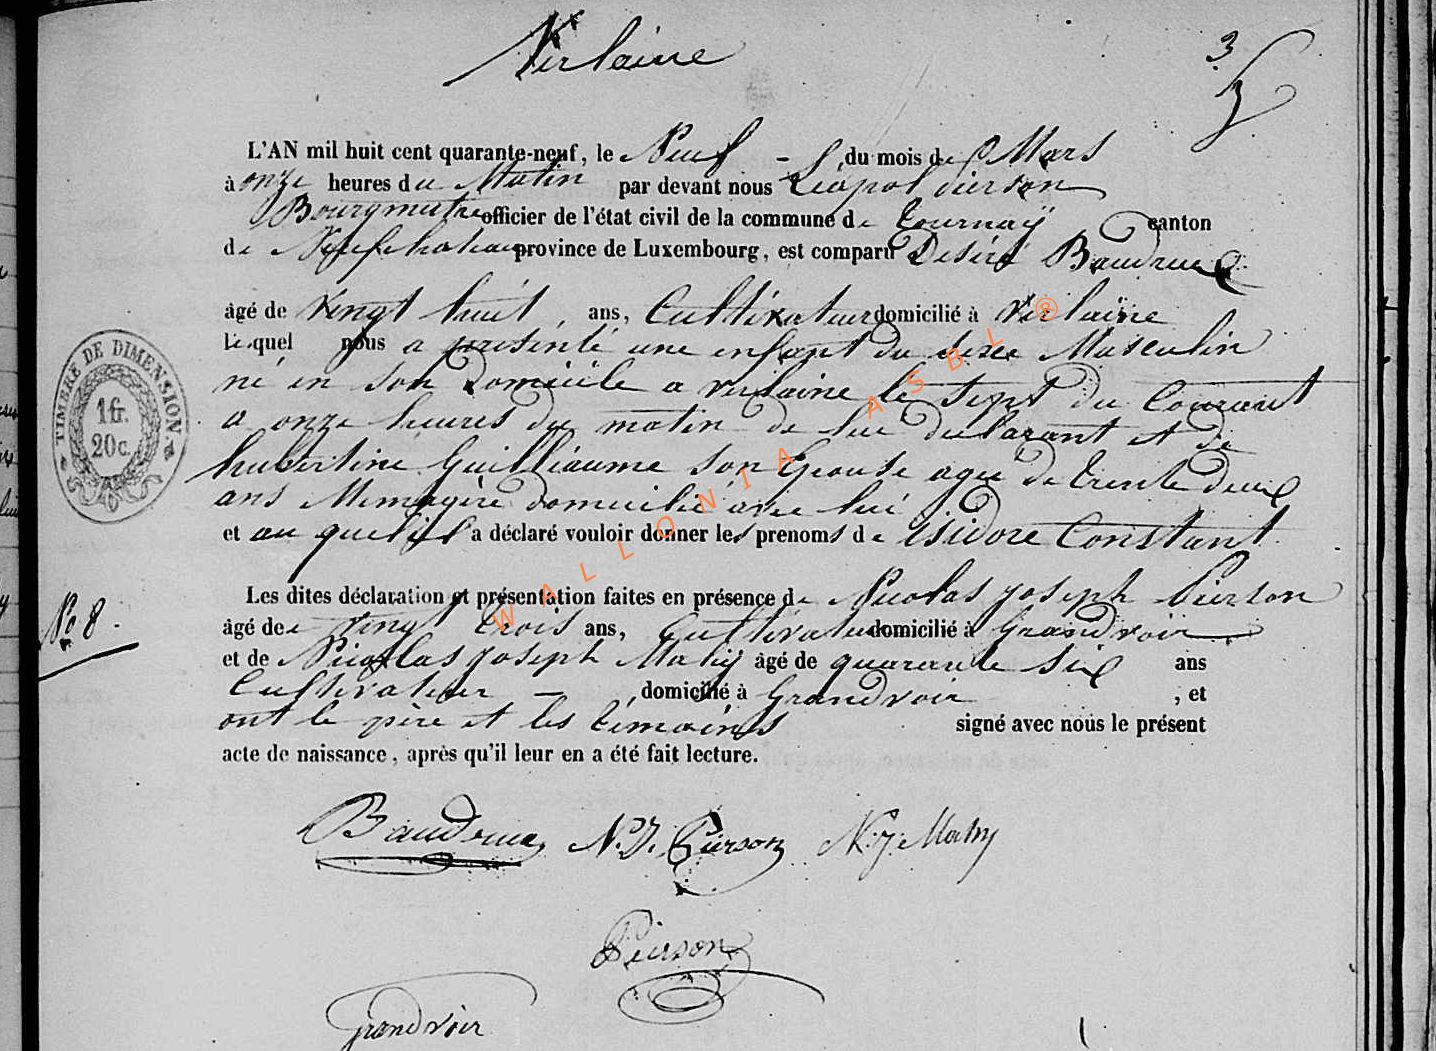 Verlaine
3
L'AN mil huit cent quarante-neuf, le Neuf du mois de Mars
à onze heures du Matin par devant nous Léopol pierson
Bourgmestre officier de l'état civil de la commune de tournay canton
de Neufchateau province de Luxembourg, est comparu Desiré Baudrux
âgé de Vingt huit ans, Cultivateur domicilié à Verlaine
lequel nous a présenté une enfant du sexe Masculin
né en son domicile a verlaine le sept du Courant
a onze heures du matin de lui declarant et de
hubertine Guilliaume son Epouse agée de trente deux
ans Menagère domicilié avec lui
et au quel il a déclaré vouloir donner les prenoms de isidore Constant
Les dites déclaration et présentation faites en présence de Nicolas joseph Pierson
âgé de vingt trois ans, Cultivateur domicilié à Grandvoir
et de Nicolas joseph Mahy âgé de quarante six ans
Cultivateur domicilié à Grandvoir , et
ont le père et les témoins signé avec nous le présent
acte de naissance, après qu'il leur en a été fait lecture.
TIMBRE DE DIMENSION
1 fr.
20 c.
No 8.
Baudrux N. J. Pierson N. j. Mahy
Pierson
Grandvoir
WALLONIA ASBL ®